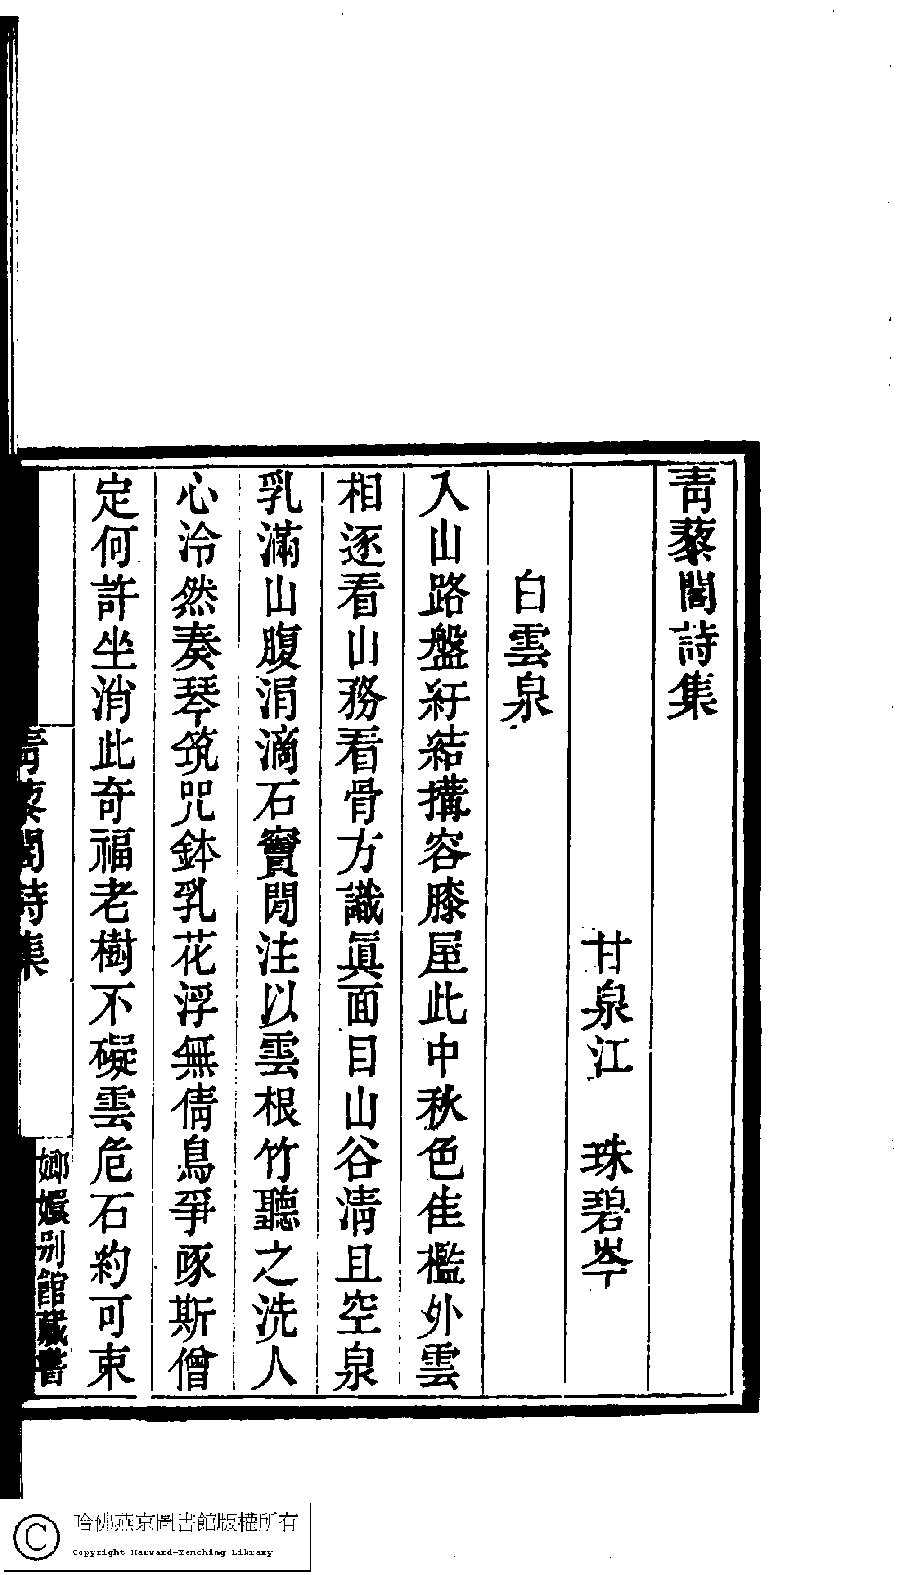 青藜閣詩集
甘泉江　珠碧岑
白雲泉
入山路盤紆結搆容膝屋此中秋色佳檻外雲
相逐看山務看骨方識眞面目山谷淸且空泉
乳滿山腹涓滴石竇閒注以雲根竹聽之洗人
心泠然奏琴筑咒鉢乳花浮無倩鳥爭啄斯僧
定何許坐消此奇福老樹不礙雲危石約可束
青藜閣詩集
嫏嬛别館藏書
哈佛燕京圖書館版權所有
Copyright Harvard-Yenching Library